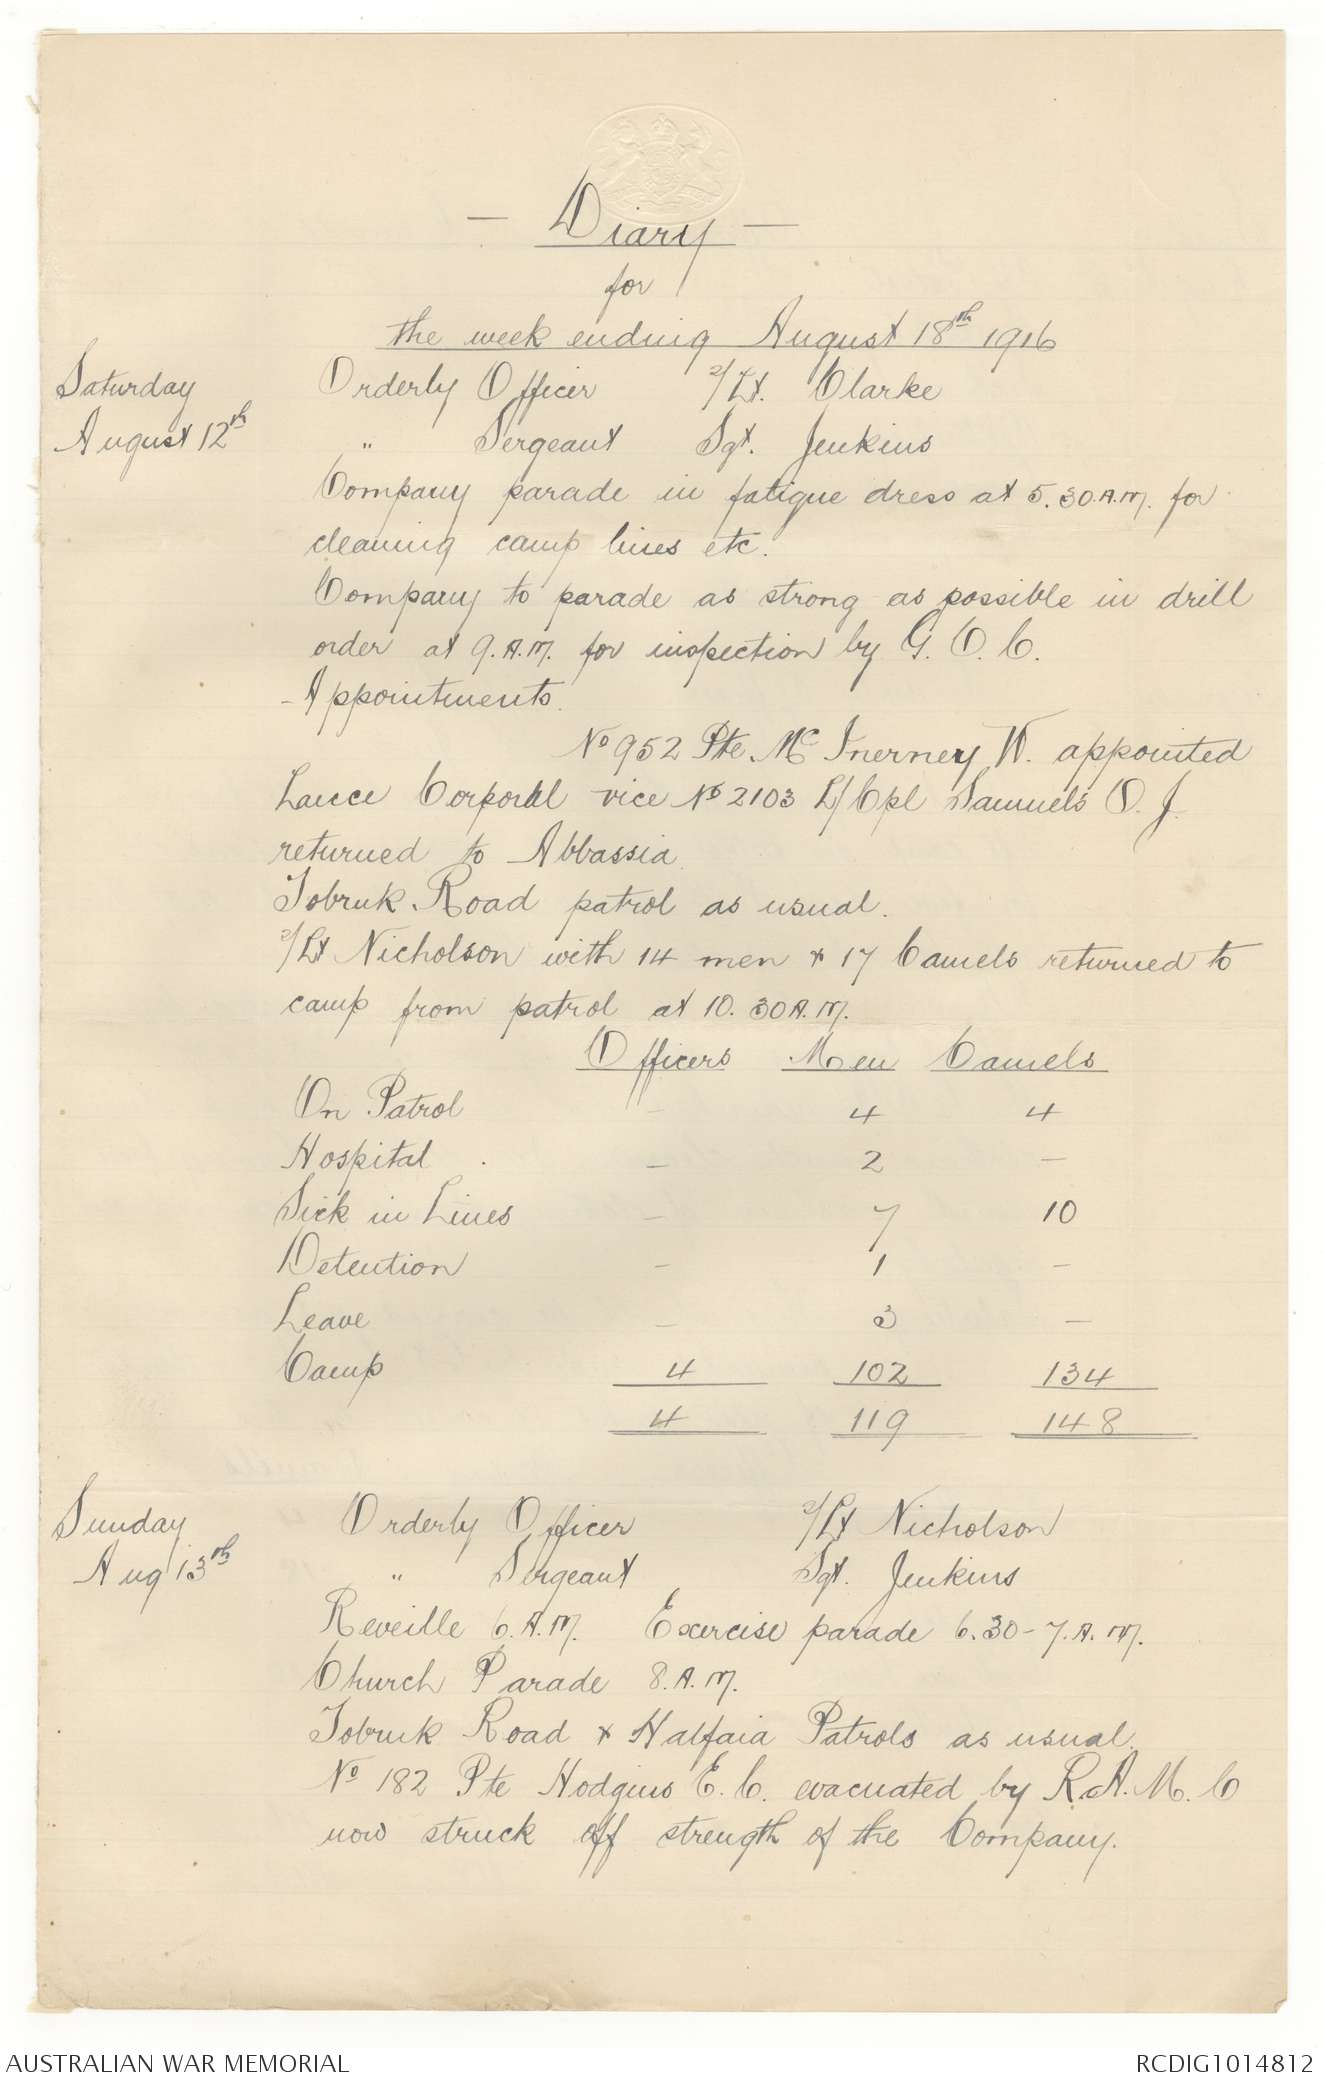 — Diary —
for
the week ending August 18th 1916
Saturday Orderly Officer 2/Lt. Clarke
August 12th " Sergeant Sgt. Jenkins
Company parade in fatigue dress at 5.30 A.M. for
cleaning camp lines etc.
Company to parade as strong as possible in drill
order at 9. A.M. for inspection by G. O. C.
Appointments.
No 952 Pte. Mc Inerney W. appointed
Lance Corporal vice No 2103 L/Cpl Samuels O. J.
returned to Abbassia.
Tobruk Road patrol as usual.
2/Lt Nicholson with 14 men & 17 Camels returned to
camp from patrol at 10. 30 A.M.
Officers Men Camels
On Patrol — 4 4
Hospital — 2 —
Sick in Lines — 7 10
Detention — 1 —
Leave — 3 —
Camp 4 102 134
4 119 148
Sunday Orderly Officer 2/Lt Nicholson
Aug 13th " Sergeant Sgt. Jenkins
Reveille 6. A.M. Exercise parade 6.30 - 7. A.M.
Church Parade 8. A.M.
Tobruk Road & Halfaia Patrols as usual.
No 182 Pte Hodgins E. C. evacuated by R.A.M.C
now struck off strength of the Company.
AUSTRALIAN WAR MEMORIAL RCDIG1014812